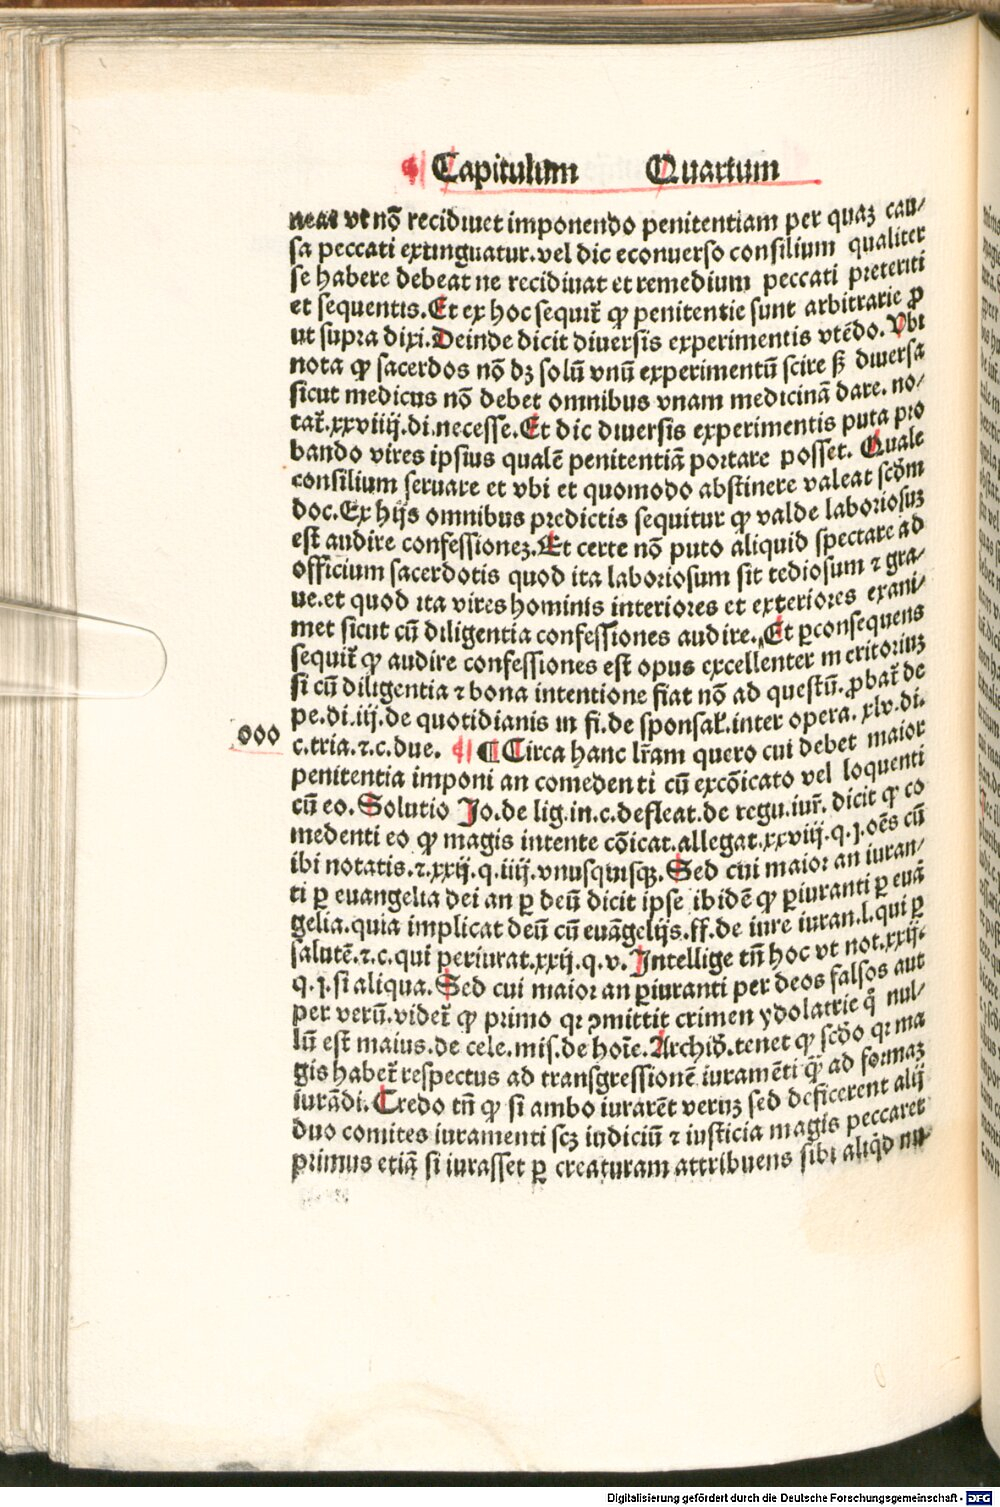 Capitulum Quartum
neat vt nõ recidiuet imponendo penitentiam per quaꝫ cau/
sa peccati extinguatur.vel dic econuerso consilium qualiter
se habere debeat ne recidiuat et remedium peccati preteriti
et sequentis.Et ex hoc sequit᷑ ꝙ penitentie sunt arbitrarie ꝓ
ut supra dixi.Deinde dicit diuersis experimentis vtẽdo.Vbi
nota ꝙ sacerdos nõ dꝫ solũ vnũ experimentũ scire sꝫ diuersa
sicut medicus nõ debet omnibus vnam medicinã dare. no/
tat᷑.xxviiij.di.necesse.Et dic diuersis experimentis puta pro
bando vires ipsius qualẽ penitentiã portare posset. Quale
consilium seruare et vbi et quomodo abstinere valeat scd̃m
doc.Ex hijs omnibus predictis sequitur ꝙ valde laboriosuꝫ
est audire confessioneꝫ.Et certe nõ puto aliquid spectare ad
officium sacerdotis quod ita laboriosum sit tediosum ⁊ gra/
ue.et quod ita vires hominis interiores et exteriores exani/
met sicut cũ diligentia confessiones audire.Et ꝑconsequens
sequit᷑ ꝙ audire confessiones est opus excellenter meritoriuꝫ
si cũ diligentia ⁊ bona intentione fiat nõ ad questũ.ꝓbat᷑ de
pe.di.iij.de quotidianis in fi.de sponsal᷑.inter opera. xlv.di.
ooo
c.tria.⁊.c.due. ¶ Circa hanc lr̃am quero cui debet maior
penitentia imponi an comedenti cũ excõicato vel loquenti
cũ eo.Solutio Jo.de lig.in.c.defleat.de regu.iur᷑. dicit ꝙ co
medenti eo ꝙ magis intente cõicat.allegat.xxviij.q.j.oẽs cũ
ibi notatis.⁊.xxij.q.iiij.vnusquisqꝫ.Sed cui maior an iuran/
ti ꝑ euangelia dei an ꝑ deũ dicit ipse ibidẽ ꝙ ꝑiuranti ꝑ euã
gelia.quia implicat deũ cũ euãgelijs.ff.de iure iuran.l.qui ꝑ
salutẽ.⁊.c.qui periurat.xxij.q.v.Intellige tñ hoc vt not.xxij.
q.j.si aliqua.Sed cui maior an ꝑiuranti per deos falsos aut
per verũ.videt᷑ ꝙ primo qꝛ ↄmittit crimen ydolatrie q̃ nul/
lũ est maius.de cele.mis.de hoĩe.Archid̃.tenet ꝙ scd̃o qꝛ ma
gis habet᷑ respectus ad transgressionẽ iuramẽti q̃ꝫ ad formaꝫ
iurãdi.Credo tñ ꝙ si ambo iurarẽt veruꝫ sed deficerent alij
duo comites iuramenti scꝫ iudiciũ ⁊ iusticia magis peccaret
primus etiã si iurasset ꝑ creaturam attribuens sibi aliq̃d nu
Digitalisierung gefördert durch die Deutsche Forschungsgemeinschaft - DFG